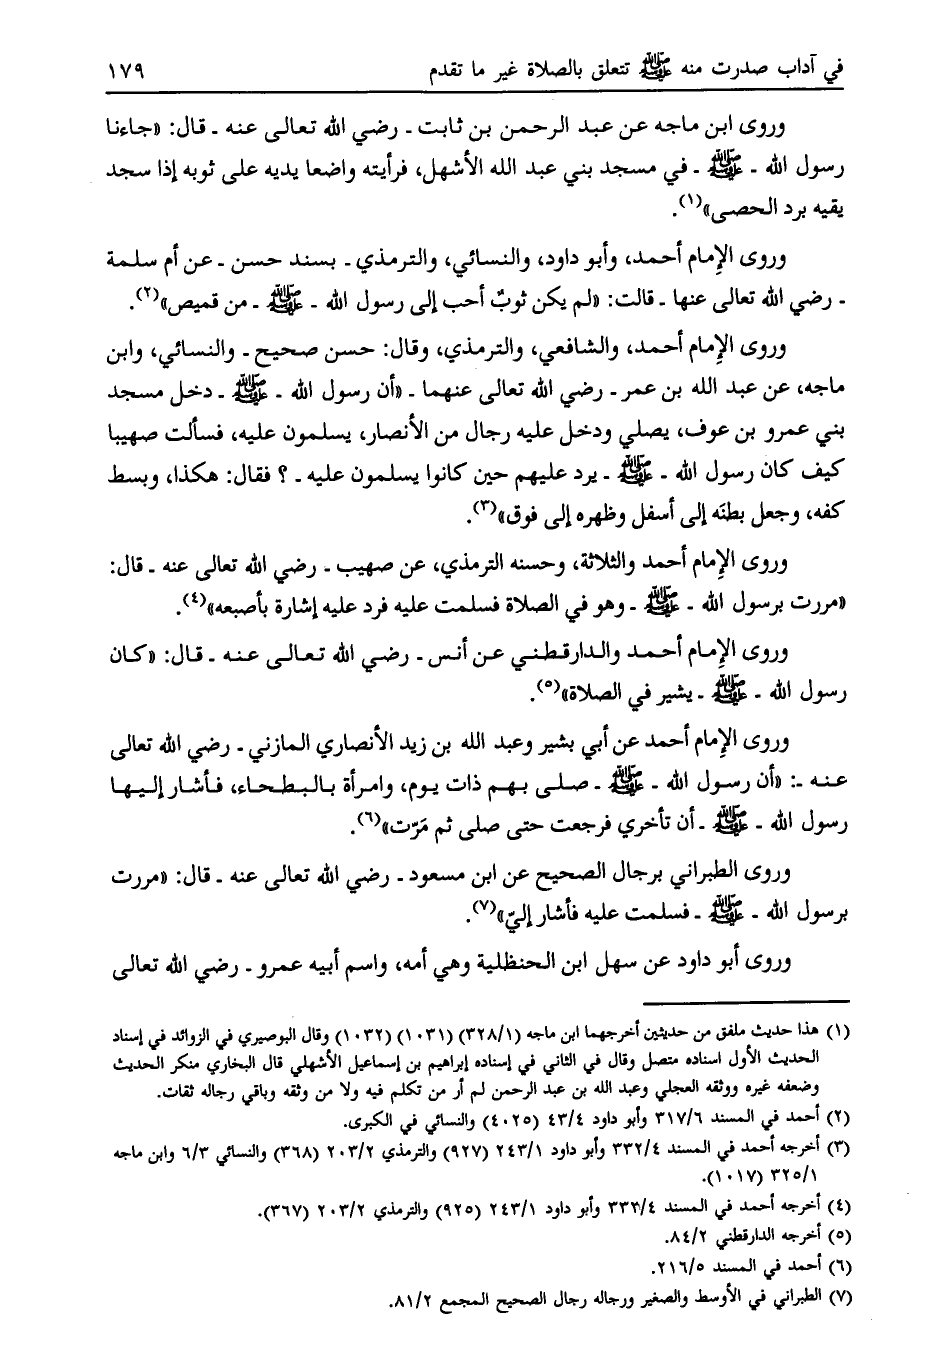 في آداب صدرت منه ﷺ تتعلق بالصلاة غير ما تقدم ١٧٩
وروى ابن ماجه عن عبد الرحمن بن ثابت ـ رضي الله تعالى عنه ـ قال: «جاءنا
رسول الله ـ ﷺ ـ في مسجد بني عبد الله الأشهل، فرأيته واضعا يديه على ثوبه إذا سجد
يقيه برد الحصى»(١).
وروى الإمام أحمد، وأبو داود، والنسائي، والترمذي ـ بسند حسن ـ عن أم سلمة
ـ رضي الله تعالى عنها ـ قالت: «لم يكن ثوبٌ أحب إلى رسول الله ـ ﷺ ـ من قميص»(٢).
وروى الإمام أحمد، والشافعي، والترمذي، وقال: حسن صحيح ـ والنسائي، وابن
ماجه، عن عبد الله بن عمر ـ رضي الله تعالى عنهما ـ «أن رسول الله ـ ﷺ ـ دخل مسجد
بني عمرو بن عوف، يصلي ودخل عليه رجال من الأنصار، يسلمون عليه، فسألت صهيبا
كيف كان رسول الله ـ ﷺ ـ يرد عليهم حين كانوا يسلمون عليه ـ ؟ فقال: هكذا، وبسط
كفه، وجعل بطنَه إلى أسفل وظهره إلى فوق»(٣).
وروى الإمام أحمد والثلاثة، وحسنه الترمذي، عن صهيب ـ رضي الله تعالى عنه ـ قال:
«مررت برسول الله ـ ﷺ ـ وهو في الصلاة فسلمت عليه فرد عليه إشارة بأصبعه»(٤).
وروى الإمام أحمد والدارقطني عن أنس ـ رضي الله تعالى عنه ـ قال: «كان
رسول الله ـ ﷺ ـ يشير في الصلاة»(٥).
وروى الإمام أحمد عن أبي بشير وعبد الله بن زيد الأنصاري المازني ـ رضي الله تعالى
عنه ـ: «أن رسول الله ـ ﷺ ـ صلى بهم ذات يوم، وامرأة بالبطحاء، فأشار إليها
رسول الله ـ ﷺ ـ أن تأخري فرجعت حتى صلى ثم مَرّت»(٦).
وروى الطبراني برجال الصحيح عن ابن مسعود ـ رضي الله تعالى عنه ـ قال: «مررت
برسول الله ـ ﷺ ـ فسلمت عليه فأشار إليّ»(٧).
وروى أبو داود عن سهل ابن الحنظلية وهي أمه، واسم أبيه عمرو ـ رضي الله تعالى
(١) هذا حديث ملفق من حديثين أخرجهما ابن ماجه (٣٢٨/١) (١٠٣١) (١٠٣٢) وقال البوصيري في الزوائد في إسناد
الحديث الأول اسناده متصل وقال في الثاني في إسناده إبراهيم بن إسماعيل الأشهلي قال البخاري منكر الحديث
وضعفه غيره ووثقه العجلي وعبد الله بن عبد الرحمن لم أر من تكلم فيه ولا من وثقه وباقي رجاله ثقات.
(٢) أحمد في المسند ٣١٧/٦ وأبو داود ٤٣/٤ (٤٠٢٥) والنسائي في الكبرى.
(٣) أخرجه أحمد في المسند ٣٣٢/٤ وأبو داود ٢٤٣/١ (٩٢٧) والترمذي ٢٠٣/٢ (٣٦٨) والنسائي ٦/٣ وابن ماجه
٣٢٥/١ (١٠١٧).
(٤) أخرجه أحمد في المسند ٣٣٣/٤ وأبو داود ٢٤٣/١ (٩٢٥) والترمذي ٢٠٣/٢ (٣٦٧).
(٥) أخرجه الدارقطني ٨٤/٢.
(٦) أحمد في المسند ٢١٦/٥.
(٧) الطبراني في الأوسط والصغير ورجاله رجال الصحيح المجمع ٨١/٢.